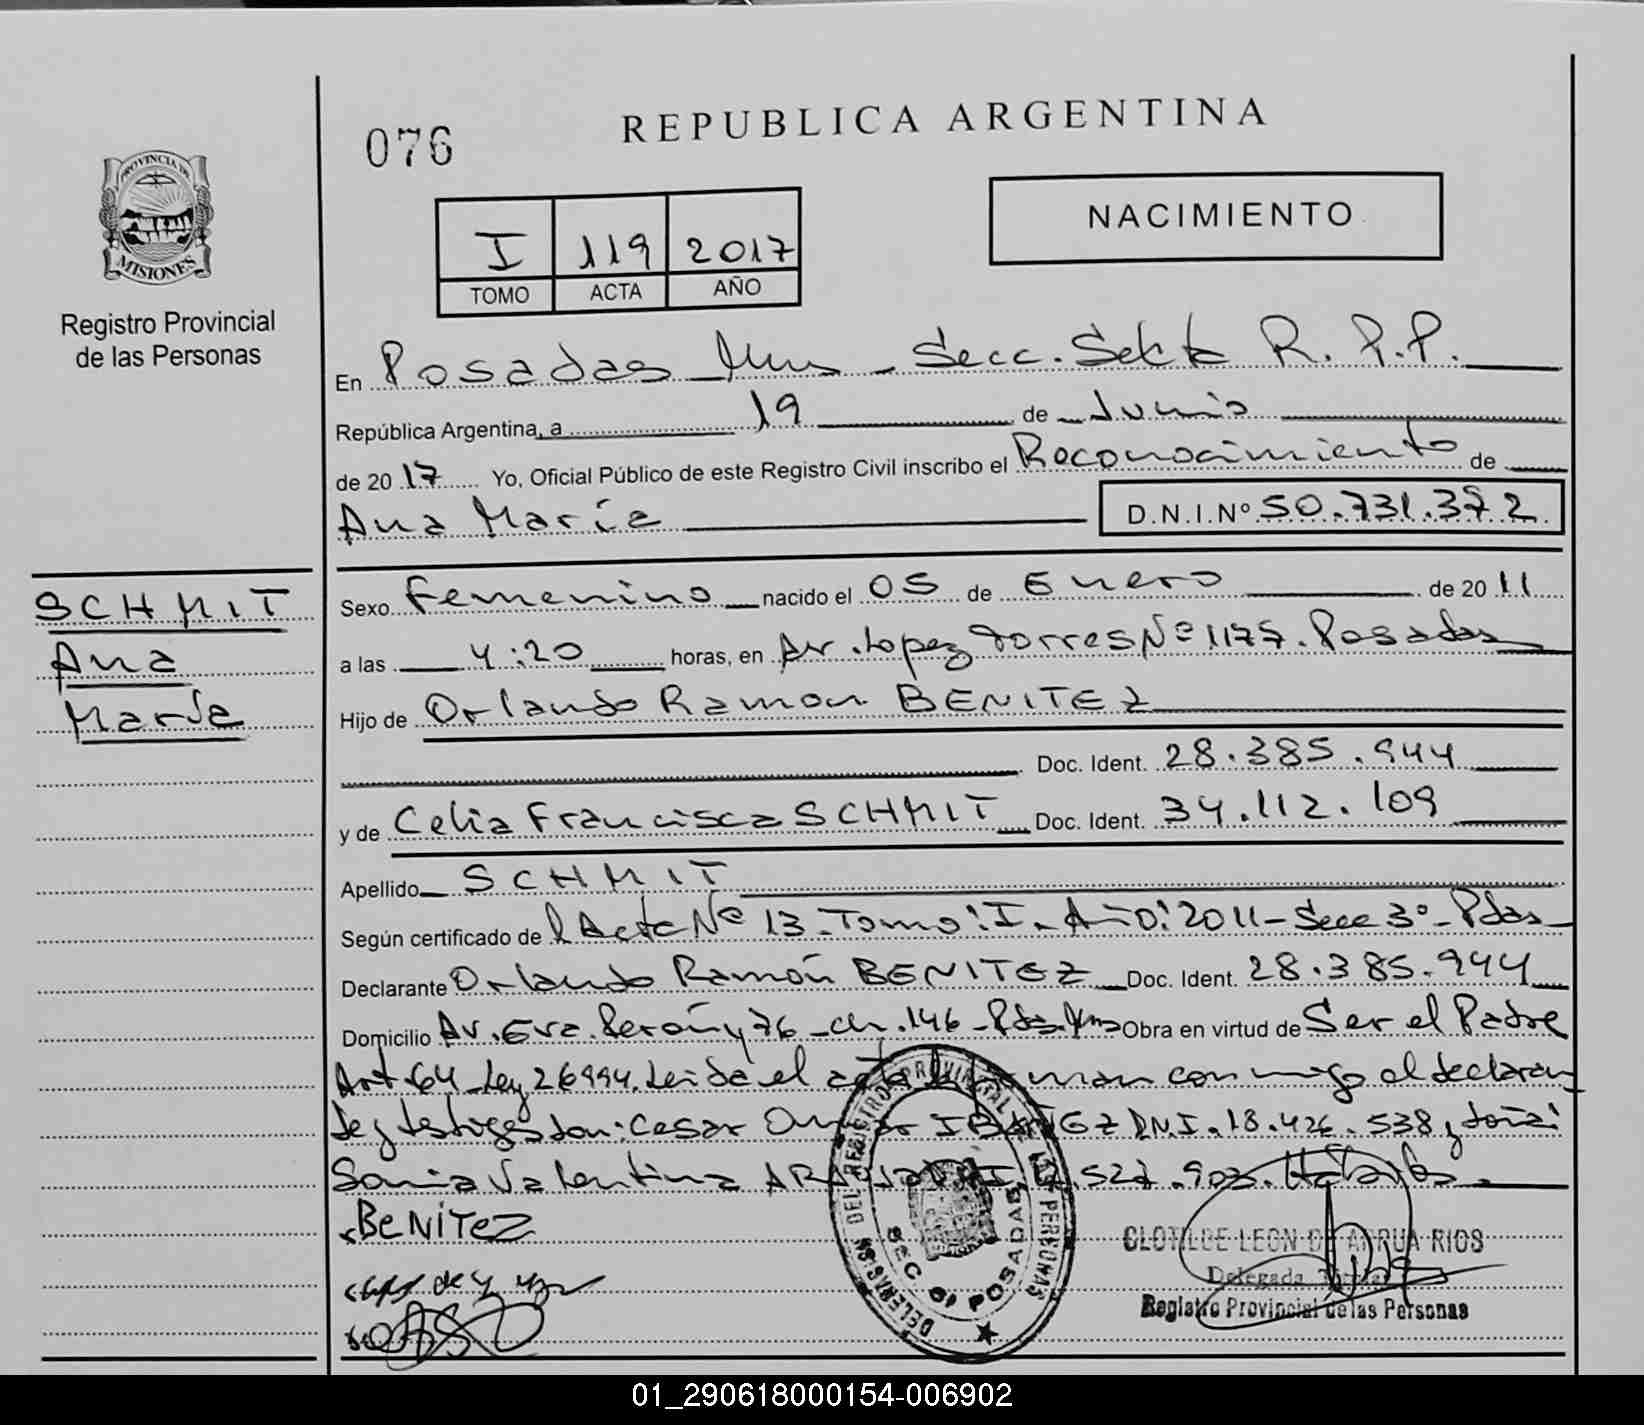 076
REPUBLICA ARGENTINA
PROVINCIA DE
MISIONES
Registro Provincial
de las Personas
I 119 2017
TOMO ACTA AÑO
NACIMIENTO
En Posadas Mnes - Secc. Sexta R. P. P.
República Argentina, a 19 de Junio
de 2017 Yo, Oficial Público de este Registro Civil inscribo el Reconocimiento de
Ana María D.N.I.Nº 50.731.372
SCHMIT
Ana
María
Sexo Femenino nacido el 05 de Enero de 2011
a las 4:20 horas, en Av. Lopez Torres Nº 1177. Posadas
Hijo de Orlando Ramon BENITEZ
Doc. Ident. 28.385.944
y de Celia Francisca SCHMIT Doc. Ident. 34.112.109
Apellido SCHMIT
Según certificado de l Acta Nº 13 - Tomo: I - Año: 2011 - Secc 3º - Pdas
Declarante Orlando Ramón BENITEZ Doc. Ident. 28.385.944
Domicilio Av. Eva Perón y 76 - ch. 146 - Pdas. Mnes Obra en virtud de Ser el Padre
Art 64 - Ley 26994. Leida el acta la firman conmigo el declaran
te y testigos Don: Cesar IBAÑEZ D.N.I. 18.426.538 y doña:
Sonia Valentina .527.903.
BENITEZ
DEL REGISTRO PROVINCIAL DE LAS PERSONAS
SEC 6ª POSADAS
CLOTILDE LEON DE ARRUA RIOS
Delegada Titular
Registro Provincial de las Personas
01_290618000154-006902